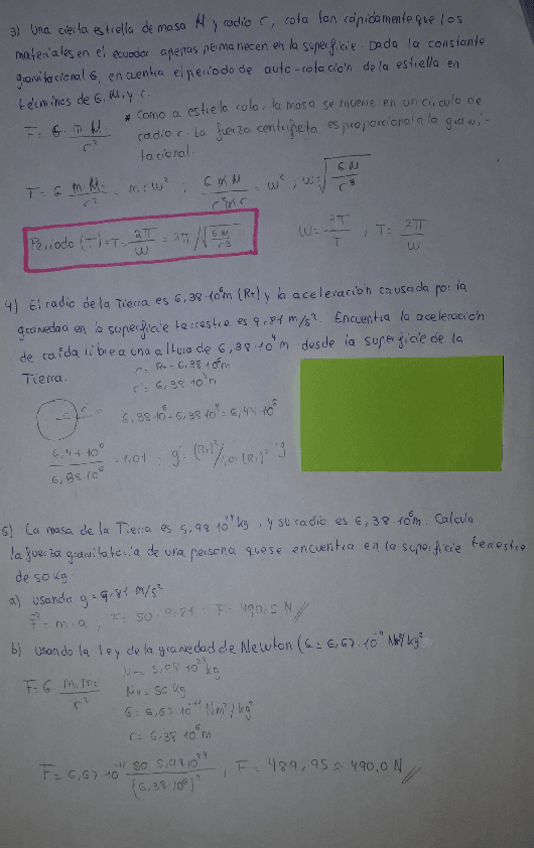 3) Una cierta estrella de masa M y radio r, rota tan rápidamente que los
materiales en el ecuador apenas permanecen en la superficie. Dada la constante
gravitacional G, encuentra el periodo de auto-rotación de la estrella en
términos de G, M, y r.
* Como a estrella rota, la masa se mueve en un circulo de
F = G · m M / r²
radio r. La fuerza centrifuga es proporcional a la gravi-
tacional.
T = G m M / r² = m r w² ; G M M / r² M r = w² ; w = √(G M / r³)
Periodo (T) = T = 2π / w = 2π / √(G M / r³)
w = 2π / T , T = 2π / w
4) El radio de la Tierra es 6,38·10⁶m (RT) y la aceleración causada por la
gravedad en la superficie terrestre es 9,81 m/s². Encuentra la aceleración
de caída libre a una altura de 6,38·10⁴m desde la superficie de la
Tierra.
r = RT = 6,38·10⁶m
r = 6,38 10⁴m
6,38 10⁶ + 6,38 10⁴ = 6,44 10⁶
6,44 10⁶ / 6,38 10⁶ = 1,01 ; g = (RT)² / 1,01 (RT)² g
5) La masa de la Tierra es 5,98 10²⁴ kg, y su radio es 6,38·10⁶m. Calcula
la fuerza gravitatoria de una persona que se encuentra en la superficie terrestre
de 50 kg.
a) usando g = 9.81 m/s²
F = m·a ; F = 50·9,81 ; F = 490,5 N
b) usando la ley de la gravedad de Newton (G = 6,67·10⁻¹¹ Nm²/kg²
M = 5,98 10²⁴ kg
F = G m₁ m₂ / r²
m = 50 kg
G = 6,67·10⁻¹¹ Nm²/kg²
r = 6,38 10⁶m
F = 6,67·10⁻¹¹ 50 · 5,98 10²⁴ / (6,38·10⁶)² , F = 489,95 ≈ 490,0 N